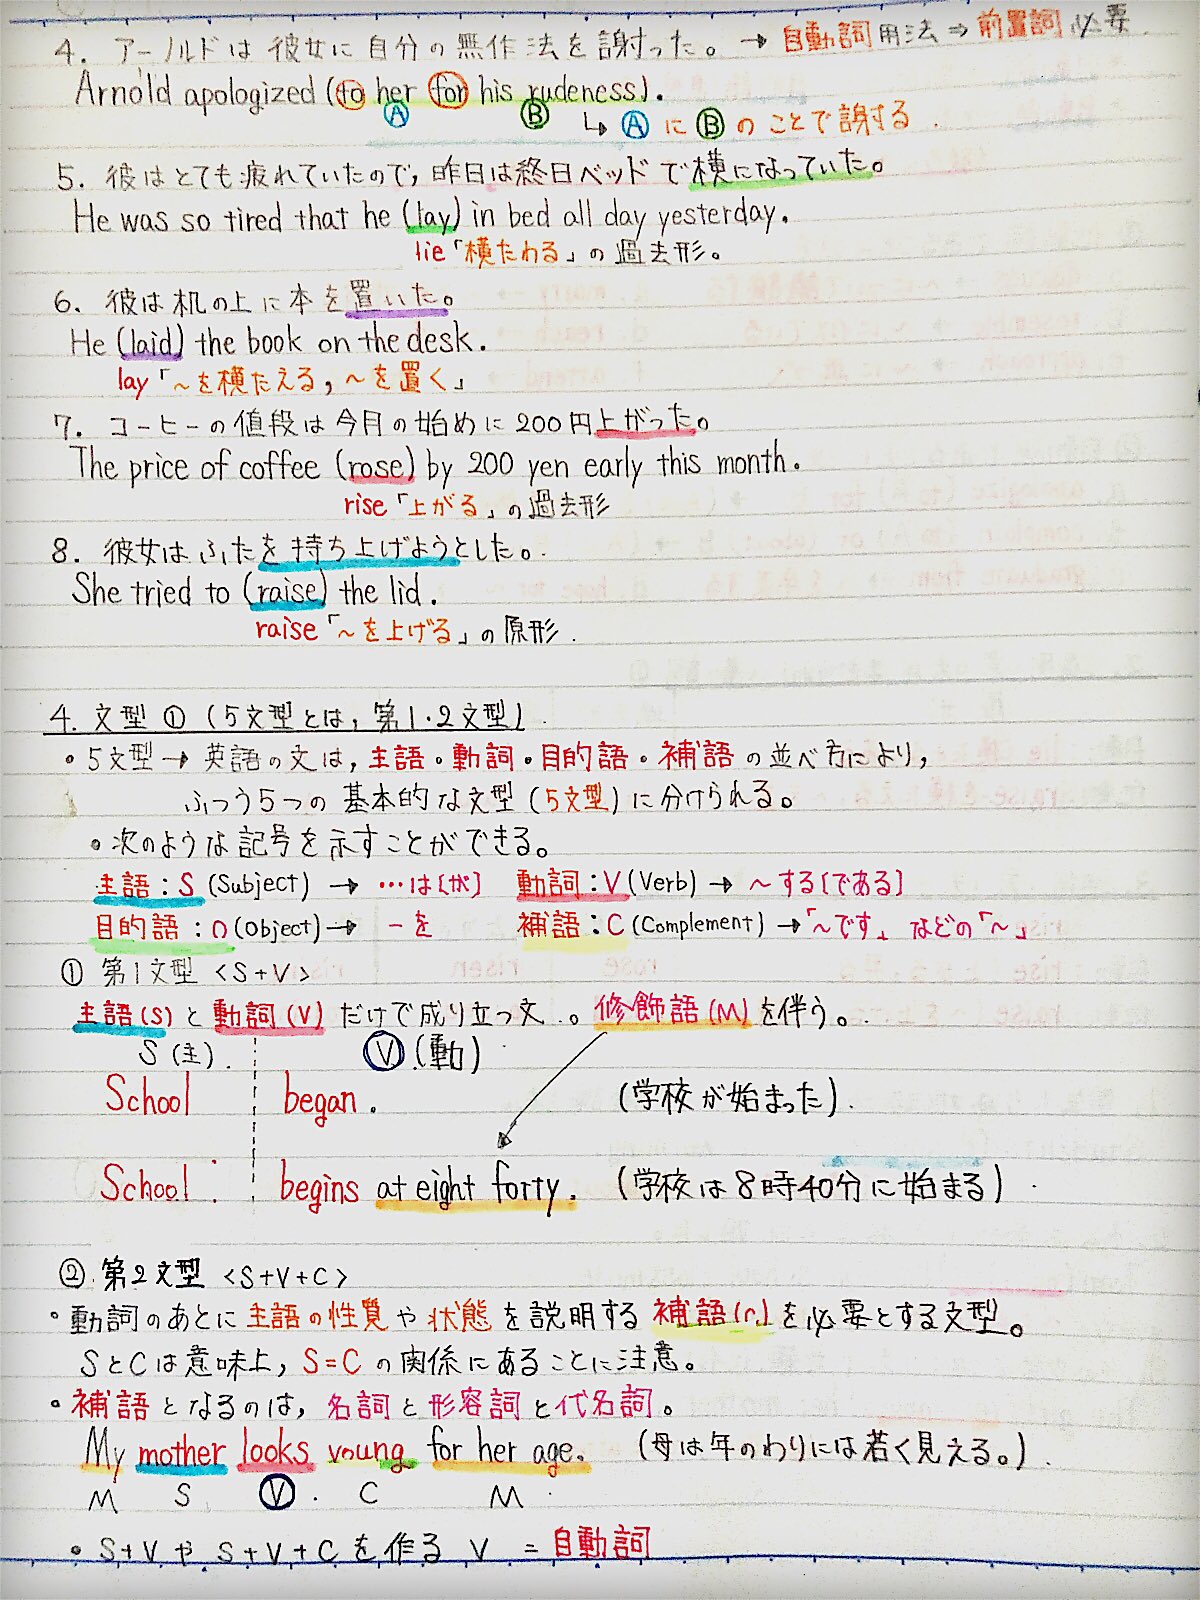 4. アーノルドは彼女に自分の無作法を謝った。→ 自動詞用法⇒前置詞必要
Arnold apologized (to her for his rudeness).
Ⓐ Ⓑ ↳ Ⓐ に Ⓑ のことで謝る.
5. 彼はとても疲れていたので, 昨日は終日ベッドで横になっていた。
He was so tired that he (lay) in bed all day yesterday.
lie「横たわる」の過去形。
6. 彼は机の上に本を置いた。
He (laid) the book on the desk.
lay「~を横たえる, ~を置く」
7. コーヒーの値段は今月の始めに200円上がった。
The price of coffee (rose) by 200 yen early this month.
rise「上がる」の過去形
8. 彼女はふたを持ち上げようとした。
She tried to (raise) the lid.
raise「~を上げる」の原形.
4. 文型 ① (5文型とは, 第1・2文型)
・5文型→英語の文は, 主語・動詞・目的語・補語の並べ方により,
ふつう5つの基本的な文型(5文型)に分けられる。
・次のような記号を示すことができる。
主語:S (Subject) → …は[が] 動詞:V (Verb) → ~する[である]
目的語:O (Object) → -を 補語:C (Complement) →「~です」などの「~」
① 第1文型 <S+V>
主語(S)と動詞(V)だけで成り立つ文。修飾語(M)を伴う。
S (主). Ⓥ (動)
School began. (学校が始まった).
School begins at eight forty. (学校は8時40分に始まる).
② 第2文型 <S+V+C>
・動詞のあとに主語の性質や状態を説明する補語(C)を必要とする文型。
SとCは意味上, S=Cの関係にあることに注意。
・補語となるのは, 名詞と形容詞と代名詞。
My mother looks young for her age. (母は年のわりには若く見える。).
M S Ⓥ. C M
・S+VやS+V+Cを作るV =自動詞